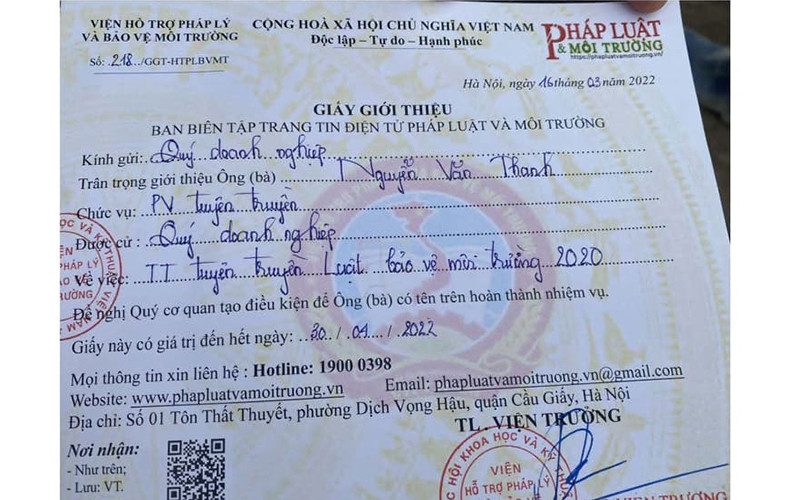 VIỆN HỖ TRỢ PHÁP LÝ
VÀ BẢO VỆ MÔI TRƯỜNG
Số: 218../GGT-HTPLBVMT
CỘNG HOÀ XÃ HỘI CHỦ NGHĨA VIỆT NAM
Độc lập – Tự do – Hạnh phúc
PHÁP LUẬT
& MÔI TRƯỜNG
https://phapluatvamoitruong.vn/
Hà Nội, ngày 16 tháng 03 năm 2022
GIẤY GIỚI THIỆU
BAN BIÊN TẬP TRANG TIN ĐIỆN TỬ PHÁP LUẬT VÀ MÔI TRƯỜNG
Kính gửi: Quý doanh nghiệp
Trân trọng giới thiệu Ông (bà) Nguyễn Văn Thanh
Chức vụ: PV tuyên truyền
Được cử: Quý doanh nghiệp
Về việc: TT tuyên truyền Luật bảo vệ môi trường 2020
Đề nghị Quý cơ quan tạo điều kiện để Ông (bà) có tên trên hoàn thành nhiệm vụ.
Giấy này có giá trị đến hết ngày: 30../04../2022
Mọi thông tin xin liên hệ : Hotline: 1900 0398
Website: www.phapluatvamoitruong.vn Email: phapluatvamoitruong.vn@gmail.com
Địa chỉ: Số 01 Tôn Thất Thuyết, phường Dịch Vọng Hậu, quận Cầu Giấy, Hà Nội
TL . VIỆN TRƯỞNG
Nơi nhận:
- Như trên;
- Lưu: VT.
VIỆN
HỖ TRỢ PHÁP LÝ
VIỆN TRƯỞNG